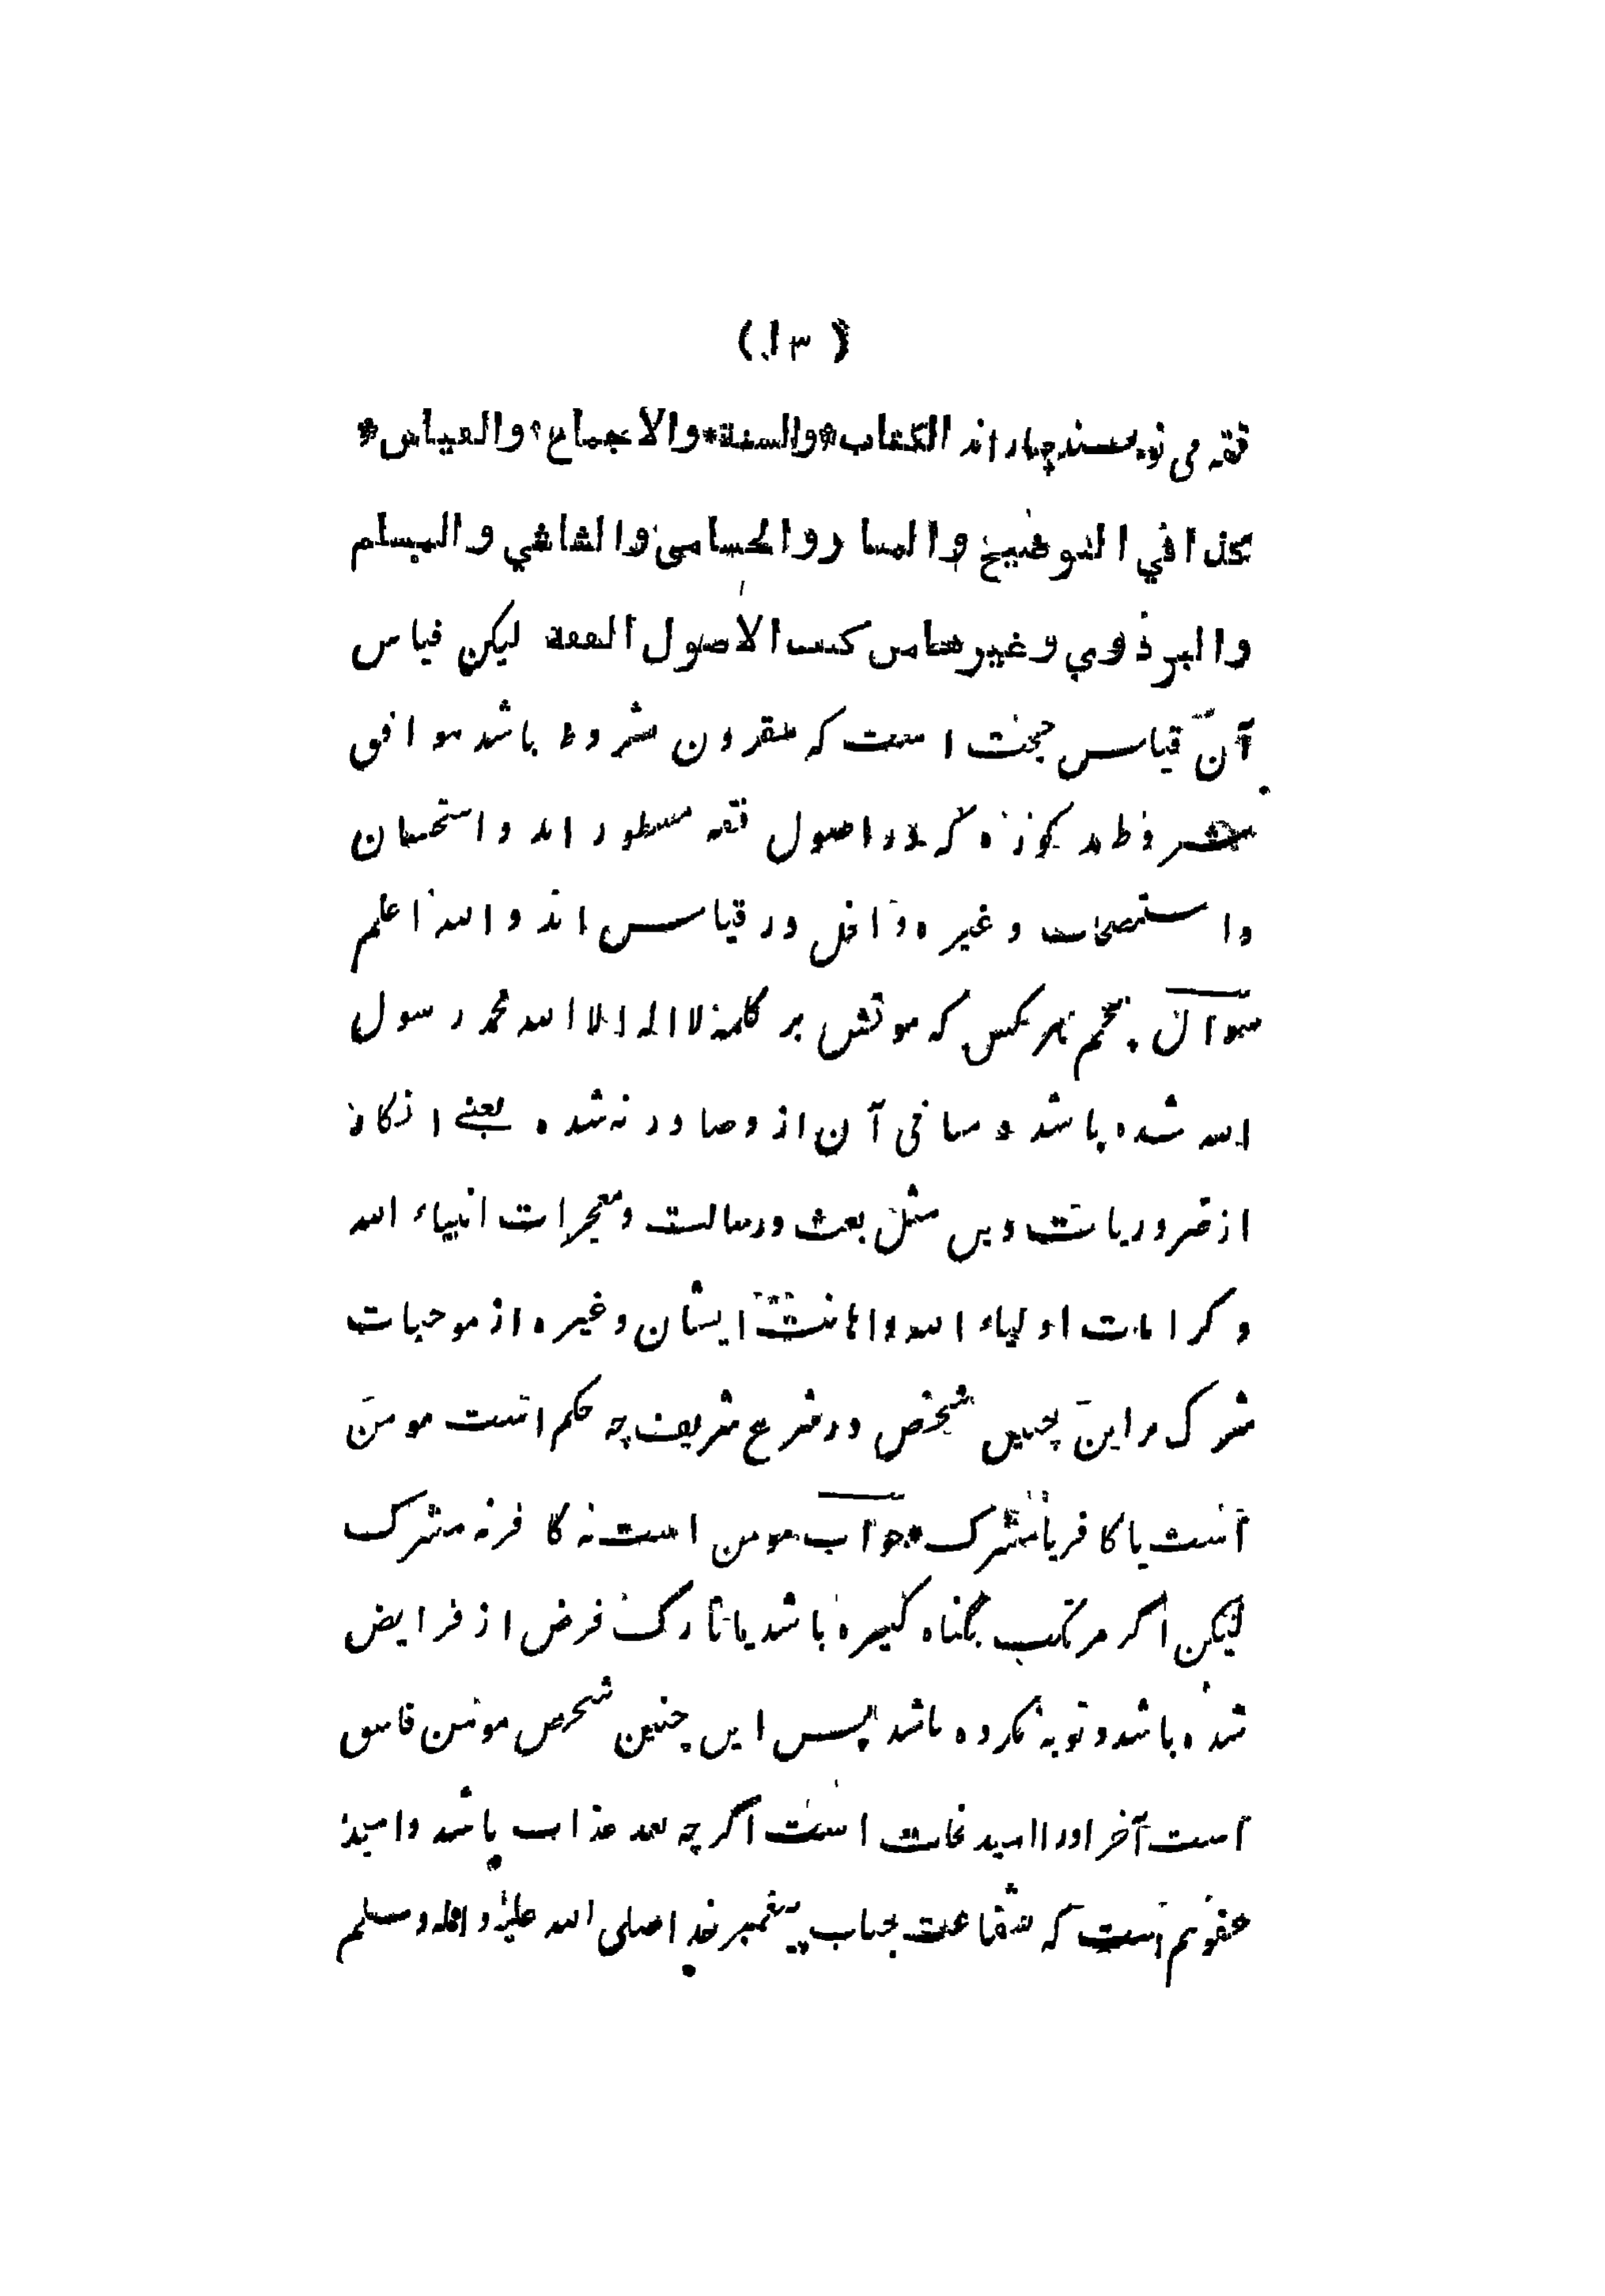 (١٣)
فقه می نویسند چهار اند الکتاب * والسنة * والاجماع * والقیاس *
هکذا في التوضیح والمنار والحسامی والشاشي والمسلم
والبزدوي وغیرها من کتب الاصول الفقه لیکن قیاس
آن قیاس حجت است که مقرون شروط باشد موافق
شروط مذکوره که در اصول فقه مسطور اند و استحسان
و استصحاب و غیره داخل در قیاس اند والله اعلم
سوال پنجم هر کس که موتش بر کلمه لا اله الا الله محمد رسول
الله شده باشد و منافی آن ازو صادر نه شده یعنے انکار
از ضروریات دین مثل بعث و رسالت و معجزات انبیاء الله
و کرامات اولیاء الله و اهانت ایشان و غیره از موجبات
شرک و این چنین شخص در شرع شریف چه حکم است مومن
است یا کافر یا مشرک * جواب مومن است نه کافر نه مشرک
لیکن اگر مرتکب گناه کبیره باشد یا تارک فرض از فرایض
شده باشد و توبه نکرده باشد پس این چنین شخص مومن فاسق
است آخر او را امید نجات است اگر چه بعد عذاب باشد و امید
عفو هم است که شفاعت جناب پیغمبر خدا صلی الله علیه و اله و سلم